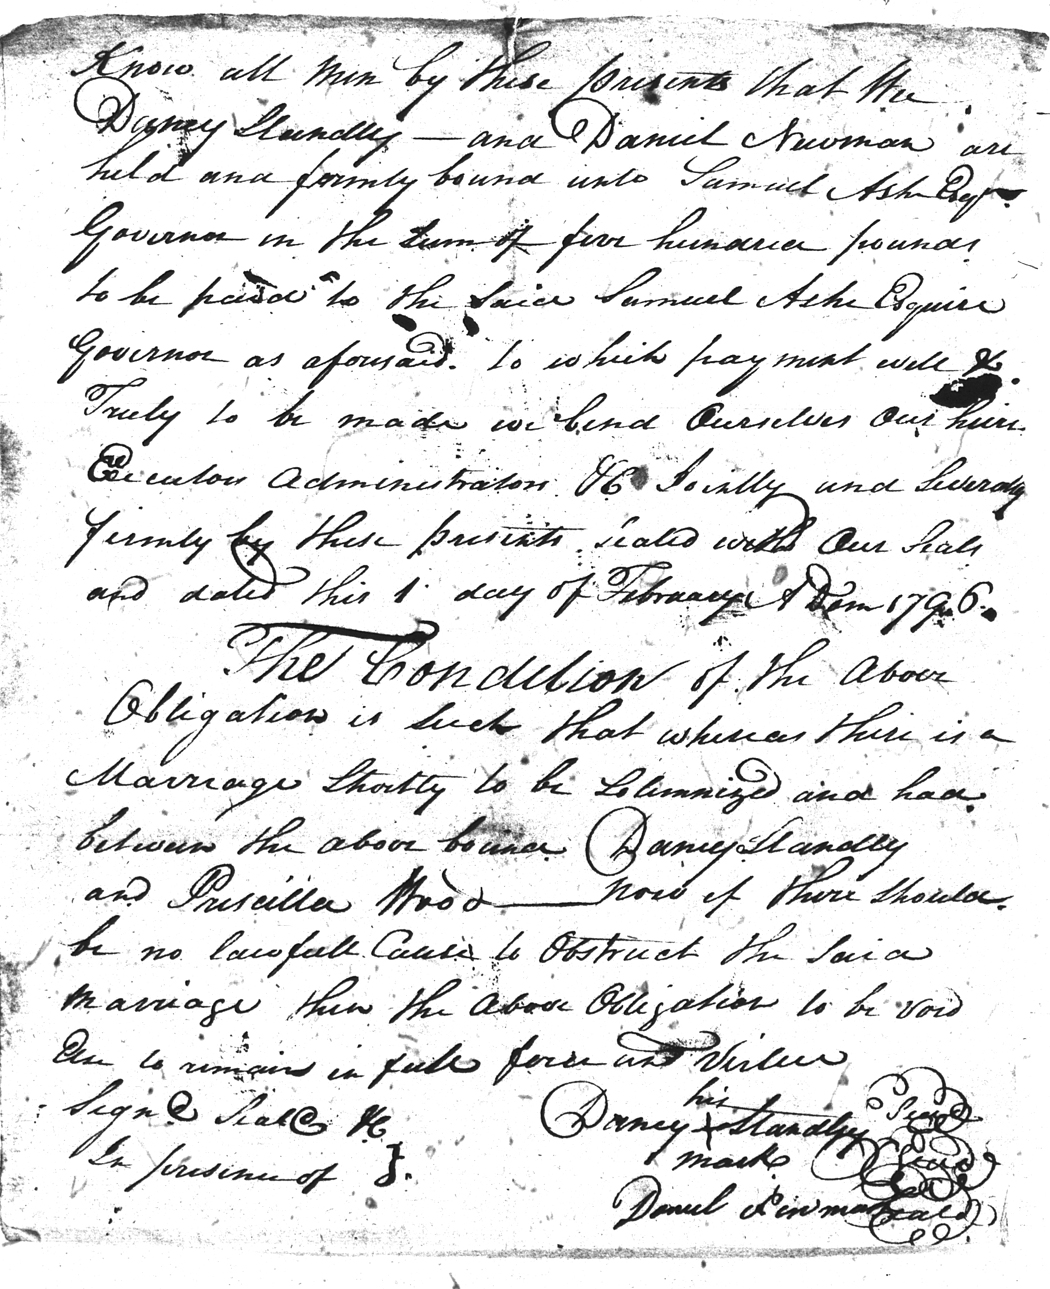 Know all Men by these presents that We
Dancy Standley — and Daniel Newman are
held and firmly bound unto Samuel Ashe Esqr.
Governor in the Sum of five hundred pounds
to be paid to the said Samuel Ashe Esquire
Governor as aforesaid. to which payment well &
Truly to be made we bend Ourselves Our heirs
Executors Administrators &C Jointly and Severaly
firmly by these presents. sealed with Our Seals
and dated this 1 day of February A Dom 1796.
The Condition of the above
Obligation is such that whereas there is a
Marriage Shortly to be Solemnized and had
between the above bound Dancy Standley
and Priscilla Wood — now if there should
be no lawfull Cause to Obstruct the said
marriage then the above Obligation to be void
Else to remain in full force and Virtue
Signd Seald &C
In presence of }.
his
Dancy + Standley Seald
mark Seald
Daniel Newman Seald